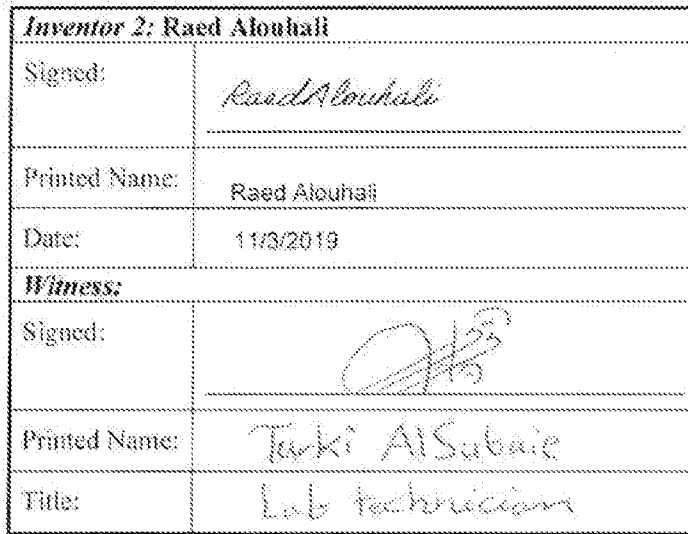 Inventor 2: Raed Alouhali
Signed:
RaedAlouhali
Printed Name:
Raed Alouhali
Date:
11/3/2019
Witness:
Signed:
Printed Name:
Turki AlSubaie
Title:
Lab technician